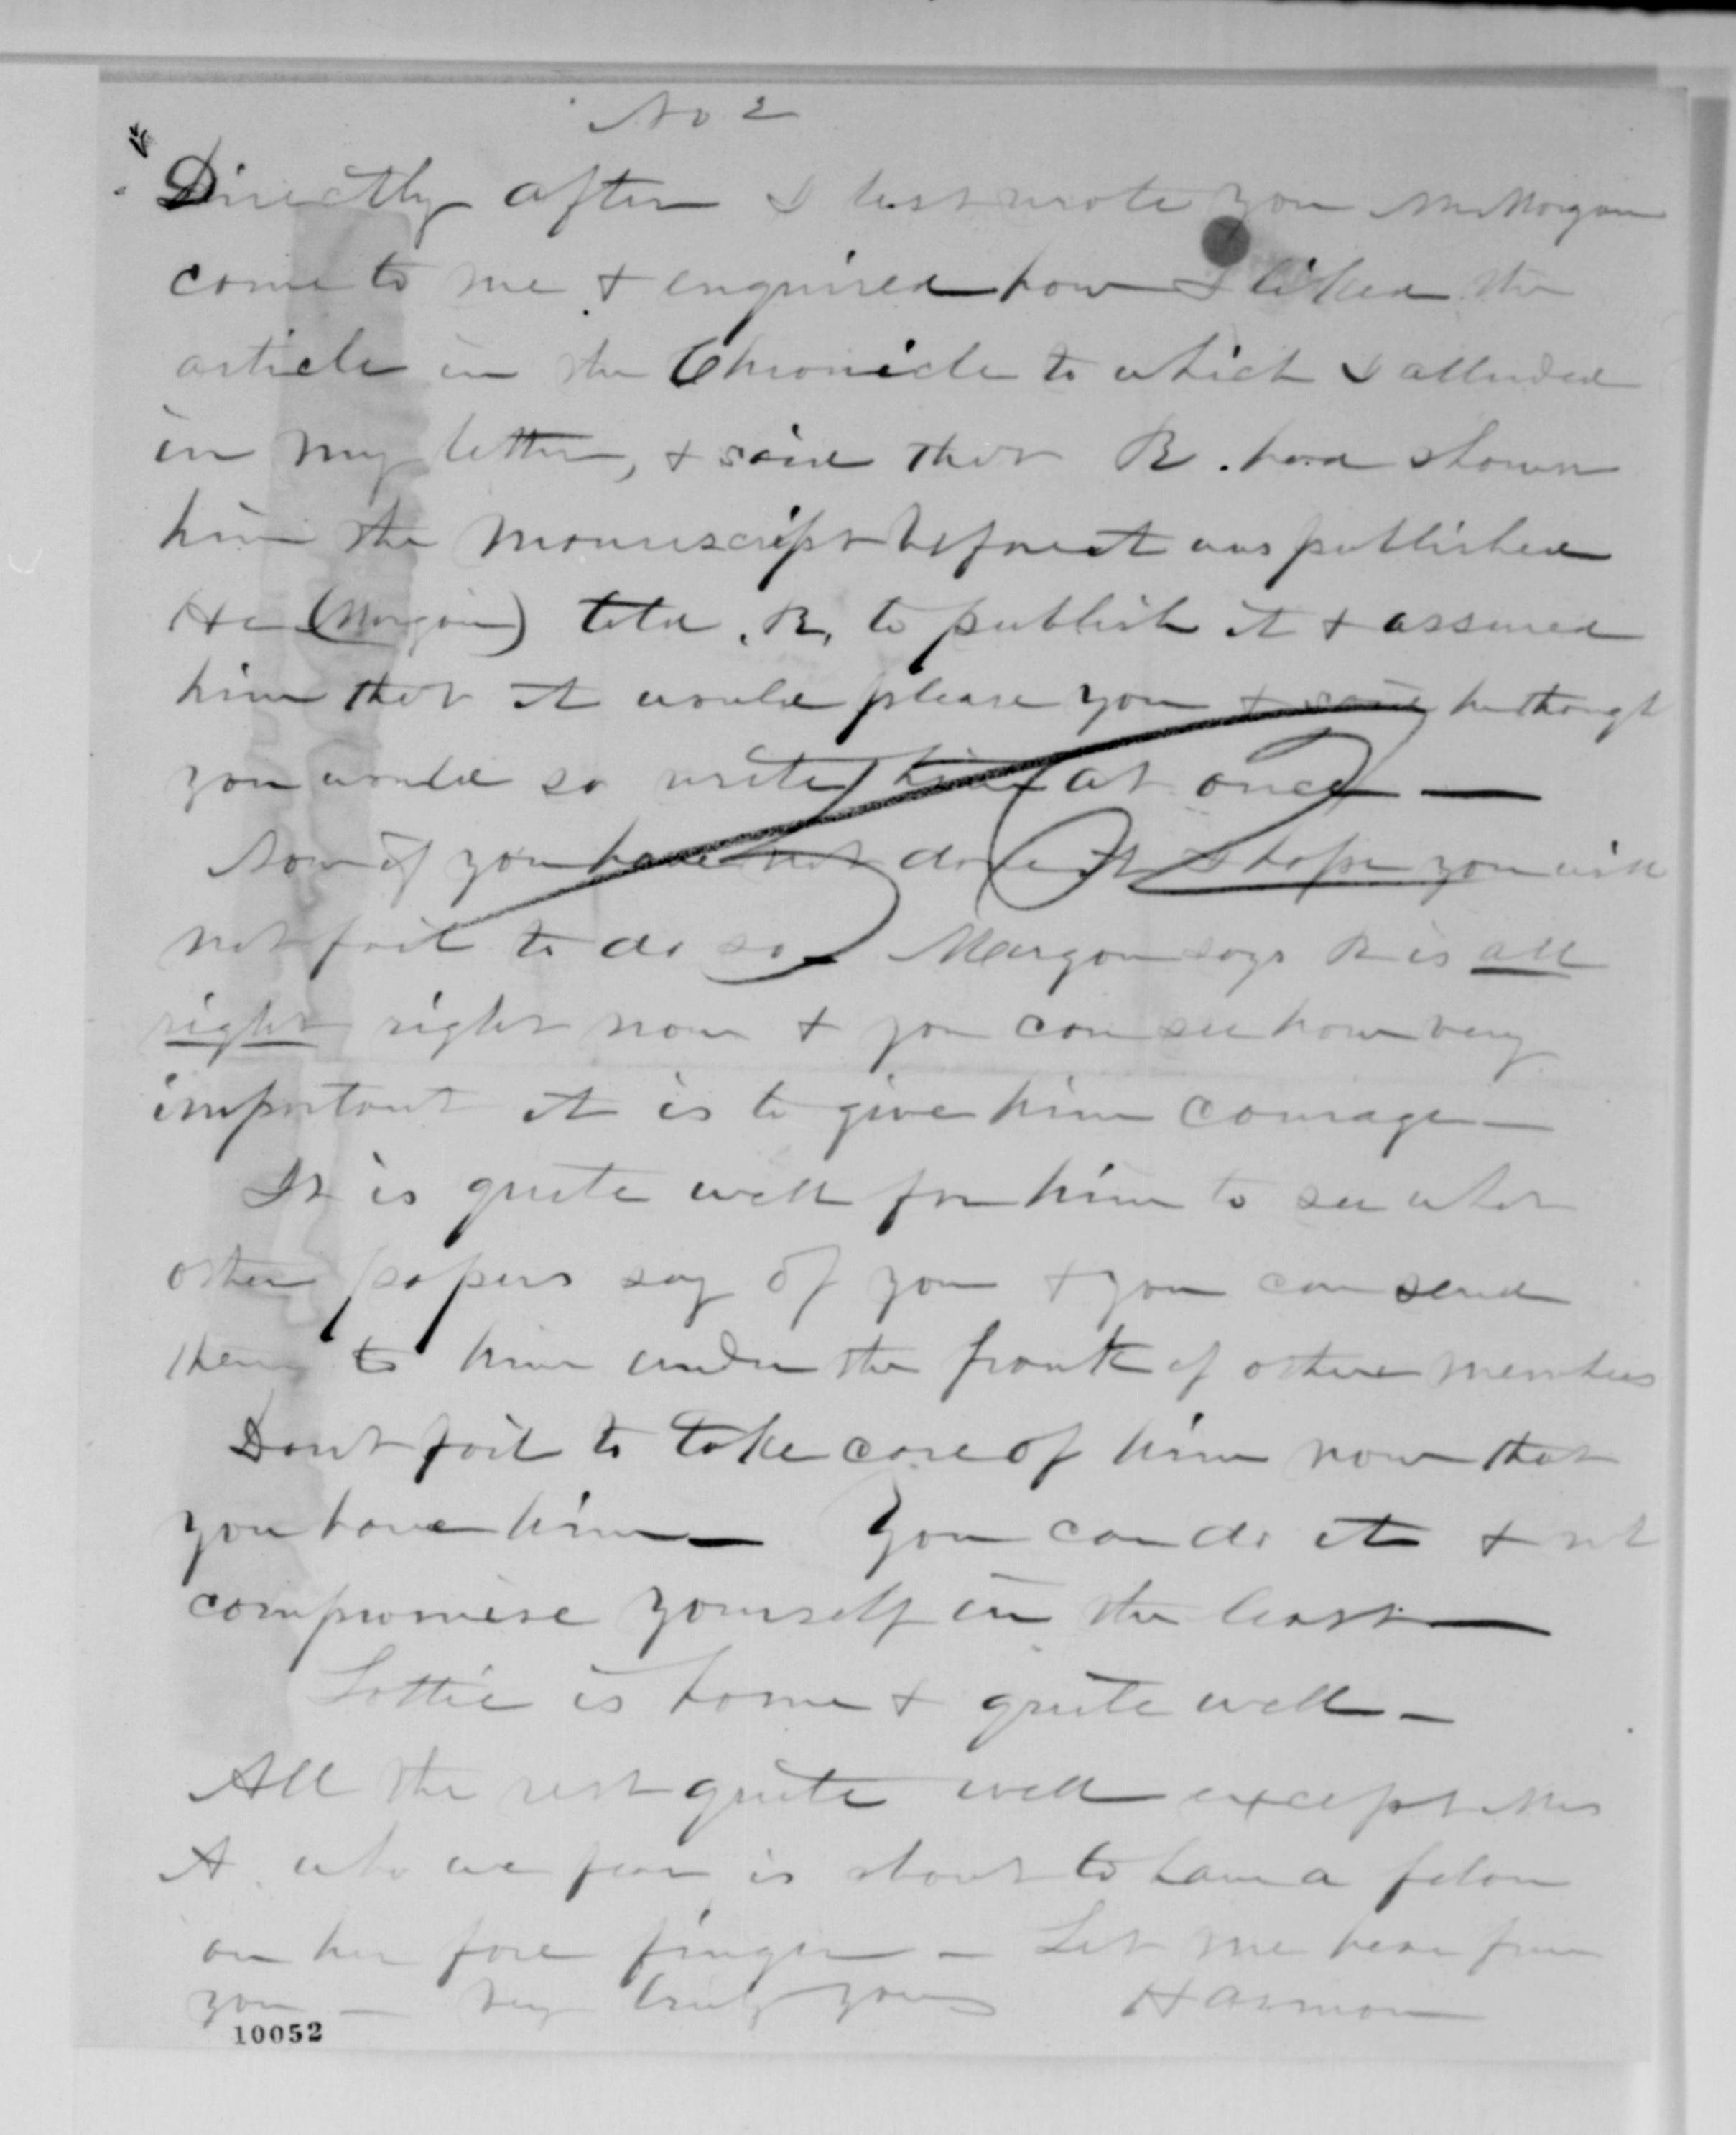 No 2
Directly after I last wrote you Mr Morgan
come to me & enquired how I liked the
article in the Chronicle to which I alluded
in my letter, & said that R. had shown
him the manuscript before it was published
He (Morgan) told .R. to publish it & assured
him that it would please you & said he though
you would so write him at once —
Now if you have not done it I hope you will
not fail to do so – Morgan says R is all
right right now & you can see how very
important it is to give him courage —
It is quite well for him to see what
other papers say of you & you can send
them to him under the frank of other members
Dont fail to take care of him now that
you have him — You can do it & not
compromise yourself in the least —
Lottie is home & quite well –
All the rest quite well except Mrs
A. who we fear is about to have a felon
on her fore finger – Let me hear from
you – Very truly yours Harmon
10052